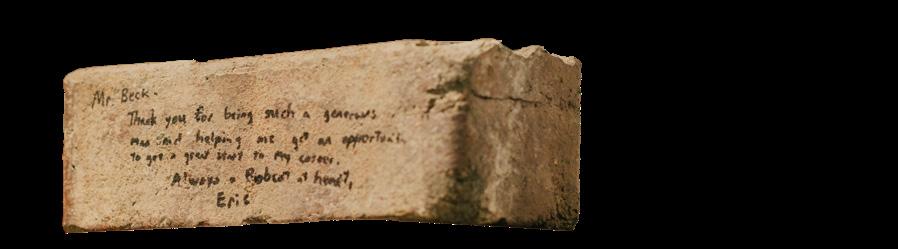 Mr. Beck-
Thank you for being such a generous
man and helping me get an opportunity
to get a great start to my career.
Always a Bobcat at heart,
Eric